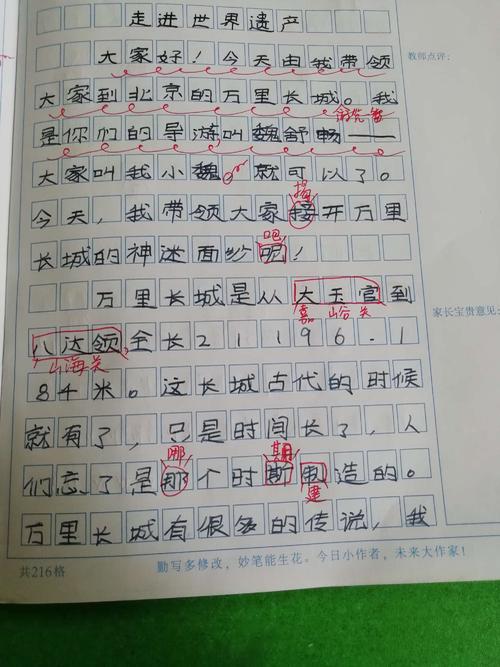 走进世界遗产
大家好！今天由我带领
教师点评：
大家到北京的万里长城。我
是你们的导游叫魏舒畅——
大家叫我小魏就可以了。
揭
今天，我带领大家接开万里
吧
长城的神迷面纱呢！
万里长城是从大玉官到
嘉峪关
家长宝贵意见：
八达领全长21196.1
山海关
84米。这长城古代的时候
就有了，只是时间长了，人
哪 期
们忘了是那个时斯制造的。
建
万里长城有很多的传说，我
共216格
勤写多修改，妙笔能生花。今日小作者，未来大作家！